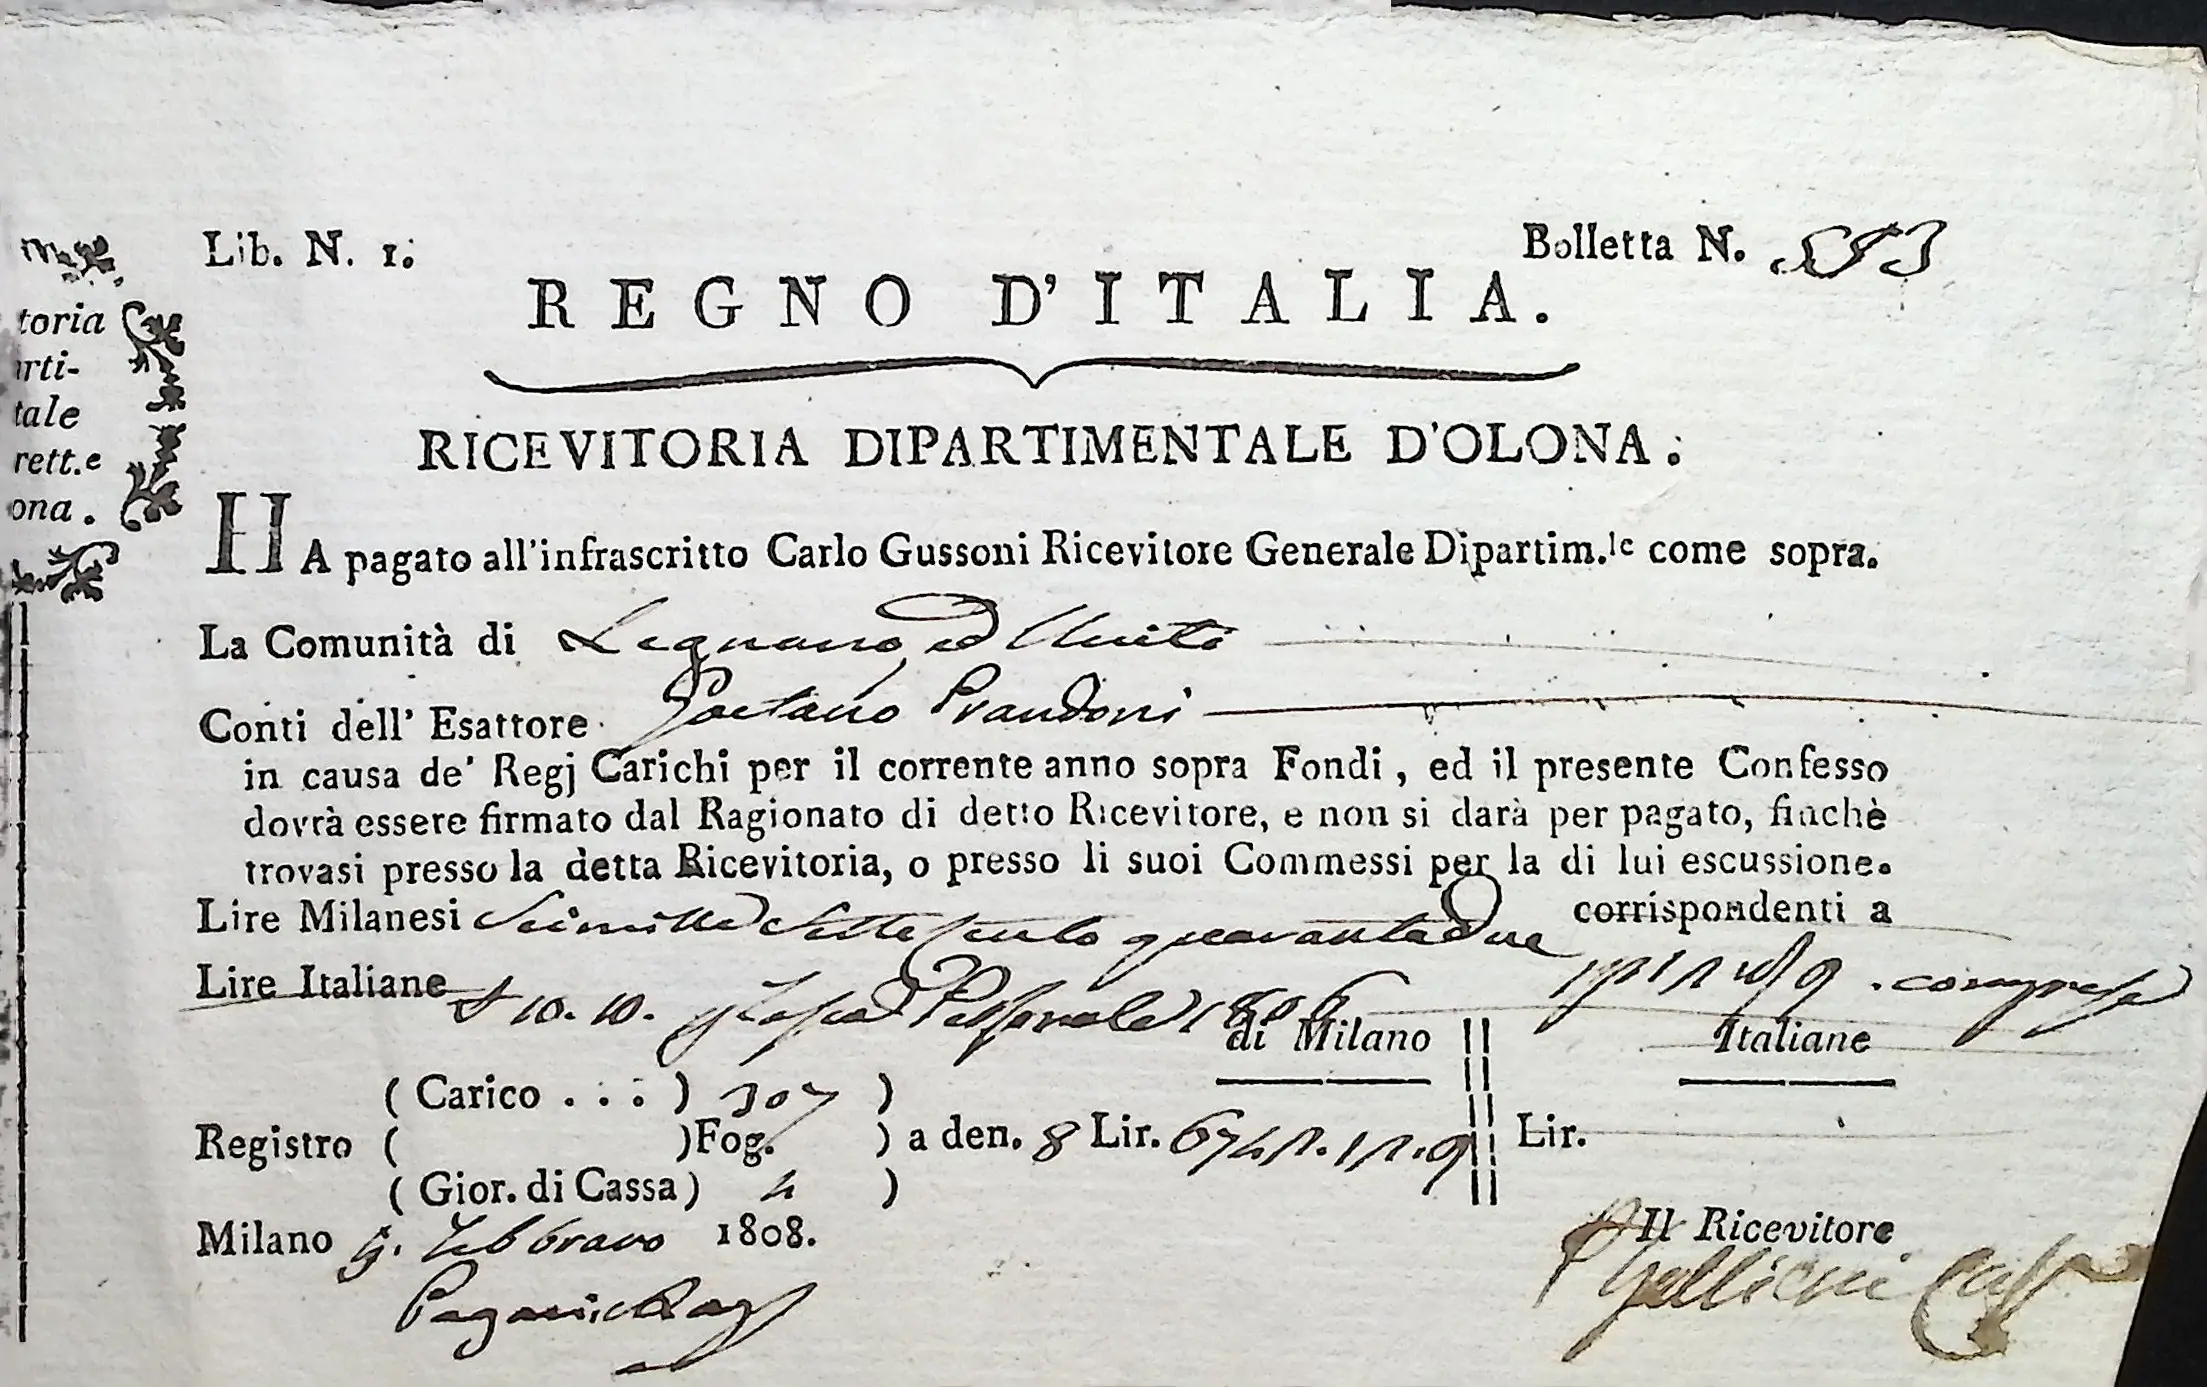 Lib. N. 1.
Bolletta N. 553
REGNO D'ITALIA.
RICEVITORIA DIPARTIMENTALE D'OLONA.
toria
arti-
tale
rett.e
ona.
HA pagato all'infrascritto Carlo Gussoni Ricevitore Generale Dipartim.le come sopra.
La Comunità di Legnano, ed Uniti
Conti dell' Esattore Gaetano Prandoni
in causa de' Regj Carichi per il corrente anno sopra Fondi, ed il presente Confesso
dovrà essere firmato dal Ragionato di detto Ricevitore, e non si darà per pagato, finchè
trovasi presso la detta Ricevitoria, o presso li suoi Commessi per la di lui escussione.
Lire Milanesi Seimille Settecento quarantadue corrispondenti a
Lire Italiane 10. 10. 1806 comprese
di Milano Italiane
( Carico . . . ) 307 )
Registro ( ) Fog. ) a den. 8 Lir. Lir.
( Gior. di Cassa ) 4 )
Milano 5. Febbraro 1808.
Il Ricevitore